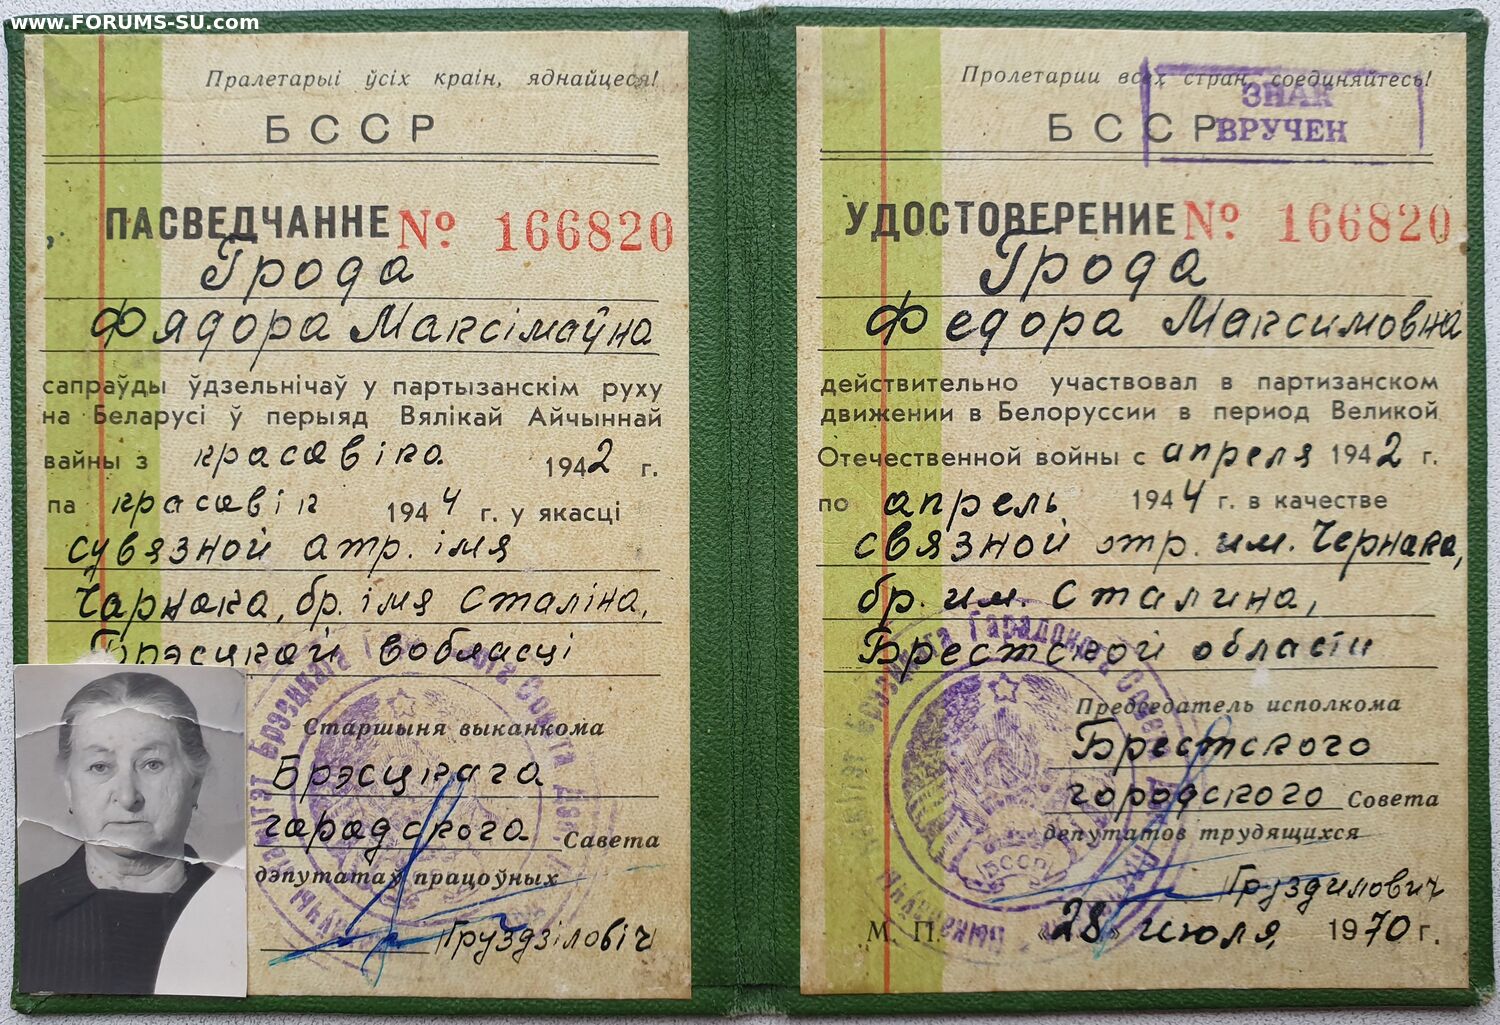 www.FORUMS-SU.com
Пралетарыі ўсіх краін, яднайцеся!
БССР
ПАСВЕДЧАННЕ № 166820
Грода
Фядора Максімаўна
сапраўды ўдзельнічаў у партызанскім руху
на Беларусі ў перыяд Вялікай Айчыннай
вайны з красавіка 1942 г.
па красавік 1944 г. у якасці
сувязной атр. імя
Чарнака, бр. імя Сталіна,
Брэсцкой вобласці
Старшыня выканкома
Брэсцкага
гарадского Савета
дэпутатаў працоўных
Груздзіловіч
Пролетарии всех стран, соединяйтесь!
БССР
ЗНАК
ВРУЧЕН
УДОСТОВЕРЕНИЕ № 166820
Грода
Федора Максимовна
действительно участвовал в партизанском
движении в Белоруссии в период Великой
Отечественной войны с апреля 1942 г.
по апрель 1944 г. в качестве
связной отр. им. Чернака,
бр. им. Сталина,
Брестской области
Председатель исполкома
Брестского
городского Совета
депутатов трудящихся
Груздилович
М. П. «28» июля 1970 г.
БССР